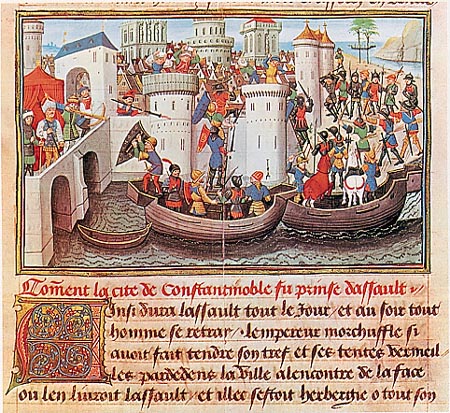 Coment la cite de Constantinoble fu prinse dassault
Ainsi dura lassault tout le Jour / et au soir tout
homme se retrai / lempereur morchuffle si
auoit fait tendre son tref et ses tentes vermeil
les pardedens la ville alencontre de la face
ou len liuroit lassault / et illec sestoit herbergie o tout son